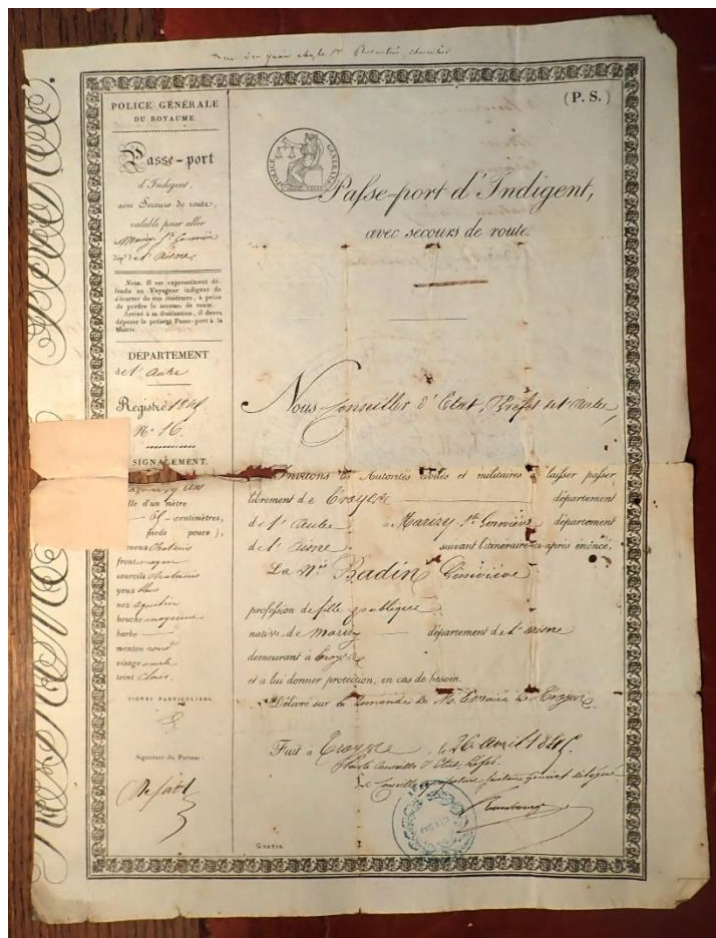 POLICE GÉNÉRALE
DU ROYAUME
Passe-port
d'Indigent,
avec Secours de route,
valable pour aller
à Marizy Ste Geneviève
dépt de l'Aisne
Nota. Il est expressément dé-
fendu au Voyageur indigent de
s'écarter de son itinéraire, à peine
de perdre le secours de route.
Arrivé à sa destination, il devra
déposer le présent Passe-port à la
Mairie.
DÉPARTEMENT
de l'Aube
Registre 1845
No 16.
SIGNALEMENT.
ans
taille d'un mètre
centimètres,
( pieds pouce ),
cheveux chatains
front moyen
sourcils chatains
yeux bleus
nez aquilin
bouche moyenne
barbe
menton rond
visage ovale
teint clair
SIGNES PARTICULIERS.
Signature du Porteur.
(P. S.)
POLICE GÉNÉRALE
Passe-port d'Indigent,
avec secours de route.
Nous Conseiller d'Etat, Préfet de l'Aube,
Invitons les Autorités civiles et militaires à laisser passer
librement de Troyes département
de l'Aube à Marizy Ste Geneviève département
de l'Aisne suivant l'itinéraire ci-après énoncé,
La née Badin Geneviève
profession de fille publique
native de Marizy département de l'Aisne
demeurant à Troyes
et à lui donner protection, en cas de besoin.
Délivré sur la demande de M. le maire de Troyes.
Fait à Troyes le 26 avril 1845
Pour le Conseiller d'Etat, Préfet
Le Conseiller de préfecture secrétaire général délégué
Gratis.